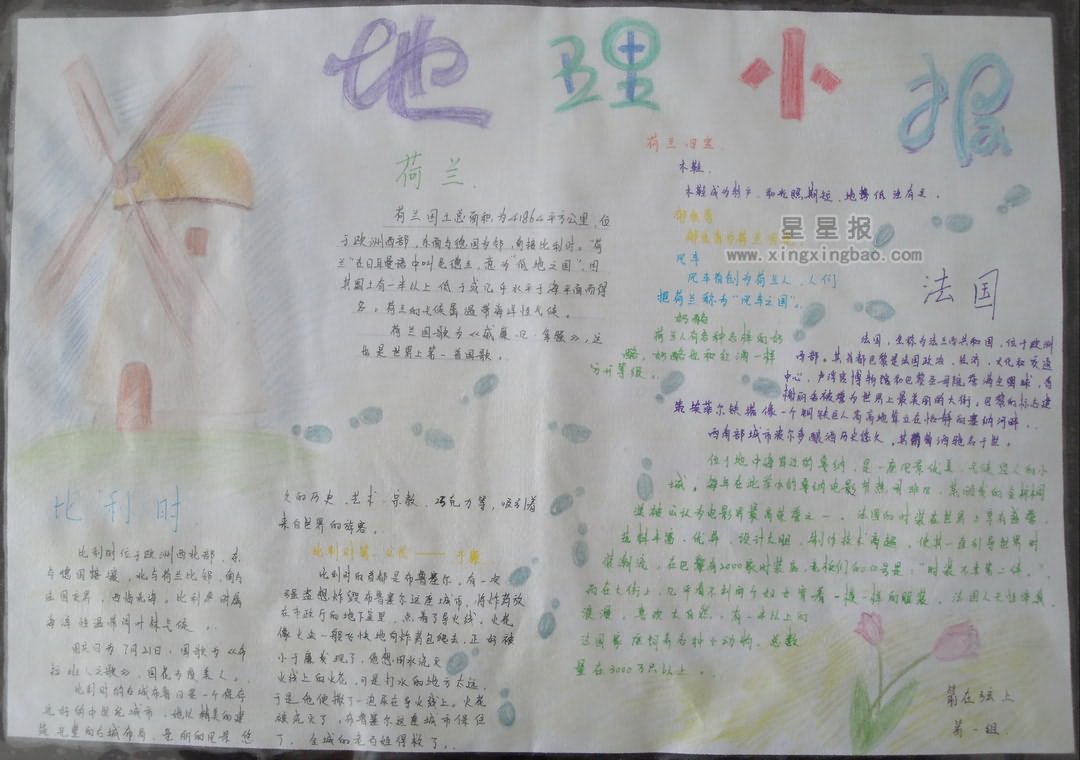 地理小报
荷兰
荷兰国土总面积为41864平方公里,位
于欧洲西部,东面与德国为邻,南接比利时。“荷
兰”在日耳曼语中叫尼德兰,意为“低地之国”,因
其国土有一半以上低于或几乎水平于海平面而得
名。荷兰的气候属温带海洋性气候。
荷兰国歌为《威廉·凡·拿骚》,这
也是世界上第一首国歌。
荷兰四宝
木鞋
木鞋成为特产,和光照期短、地势低洼有关。
郁金香
郁金香为荷兰国花
风车
风车首创为荷兰人,人们
把荷兰称为“风车之国”。
奶酪
荷兰人有各种各样的奶
酪,奶酪也和红酒一样
分开等级。
星星报
www.xingxingbao.com
法国
法国,全称为法兰西共和国,位于欧洲
西部。其首都巴黎是法国政治、经济、文化和交通
中心,卢浮宫博物馆和巴黎圣母院誉满全球,香
榭丽舍被誉为世界上最美丽的大街,巴黎的标志建
筑埃菲尔铁塔像一个钢铁巨人高高地耸立在恬静的塞纳河畔。
西南部城市波尔多酿酒历史悠久,其葡萄酒驰名于世。
位于地中海岸边的戛纳,是一座风景优美、气候宜人的小
城,每年在此举办的戛纳电影节热闹非凡,其颁发的金棕榈
奖被公认为电影界最高荣誉之一。法国的时装在世界上享有盛誉,
选料丰富、优异,设计大胆,制作技术高超,使其一直引导世界时
装潮流,在巴黎有2000家时装店,老板们的口号是:“时装不卖第二件。”
而在大街上,几乎看不到两个妇女穿着一模一样的服装。法国人天性率真
浪漫,喜欢大自然,有一半以上的
法国家庭饲养各种小动物,总数
量在3000万只以上。
比利时
比利时位于欧洲西北部,东
与德国接壤,北与荷兰比邻,南与
法国交界,西临北海,比利时属
海洋性温带阔叶林气候。
国庆日为7月21日,国歌为《布
拉班人之歌》,国花为虞美人。
比利时的古城布鲁日是一个保存
完好的中世纪城市,她以精美的建
筑,完整的古城布局,景丽的风景,悠
久的历史、艺术、宗教、巧克力等,吸引着
来自世界的旅客。
比利时的首都是布鲁塞尔。有一次
强盗想炸毁布鲁塞尔这座城市,将炸药放
在市政厅的地下室里,点着了导火线,火花
像火虫一般飞快地向炸药包爬去,正好被
小于廉发现了,他想用水浇灭
火线上的火花,可是打水的地方太远,
于是他便撒了一泡尿在导火线上。火花
被浇灭了,布鲁塞尔这座城市保住
了,全城的老百姓得救了。
箭在弦上
第一组